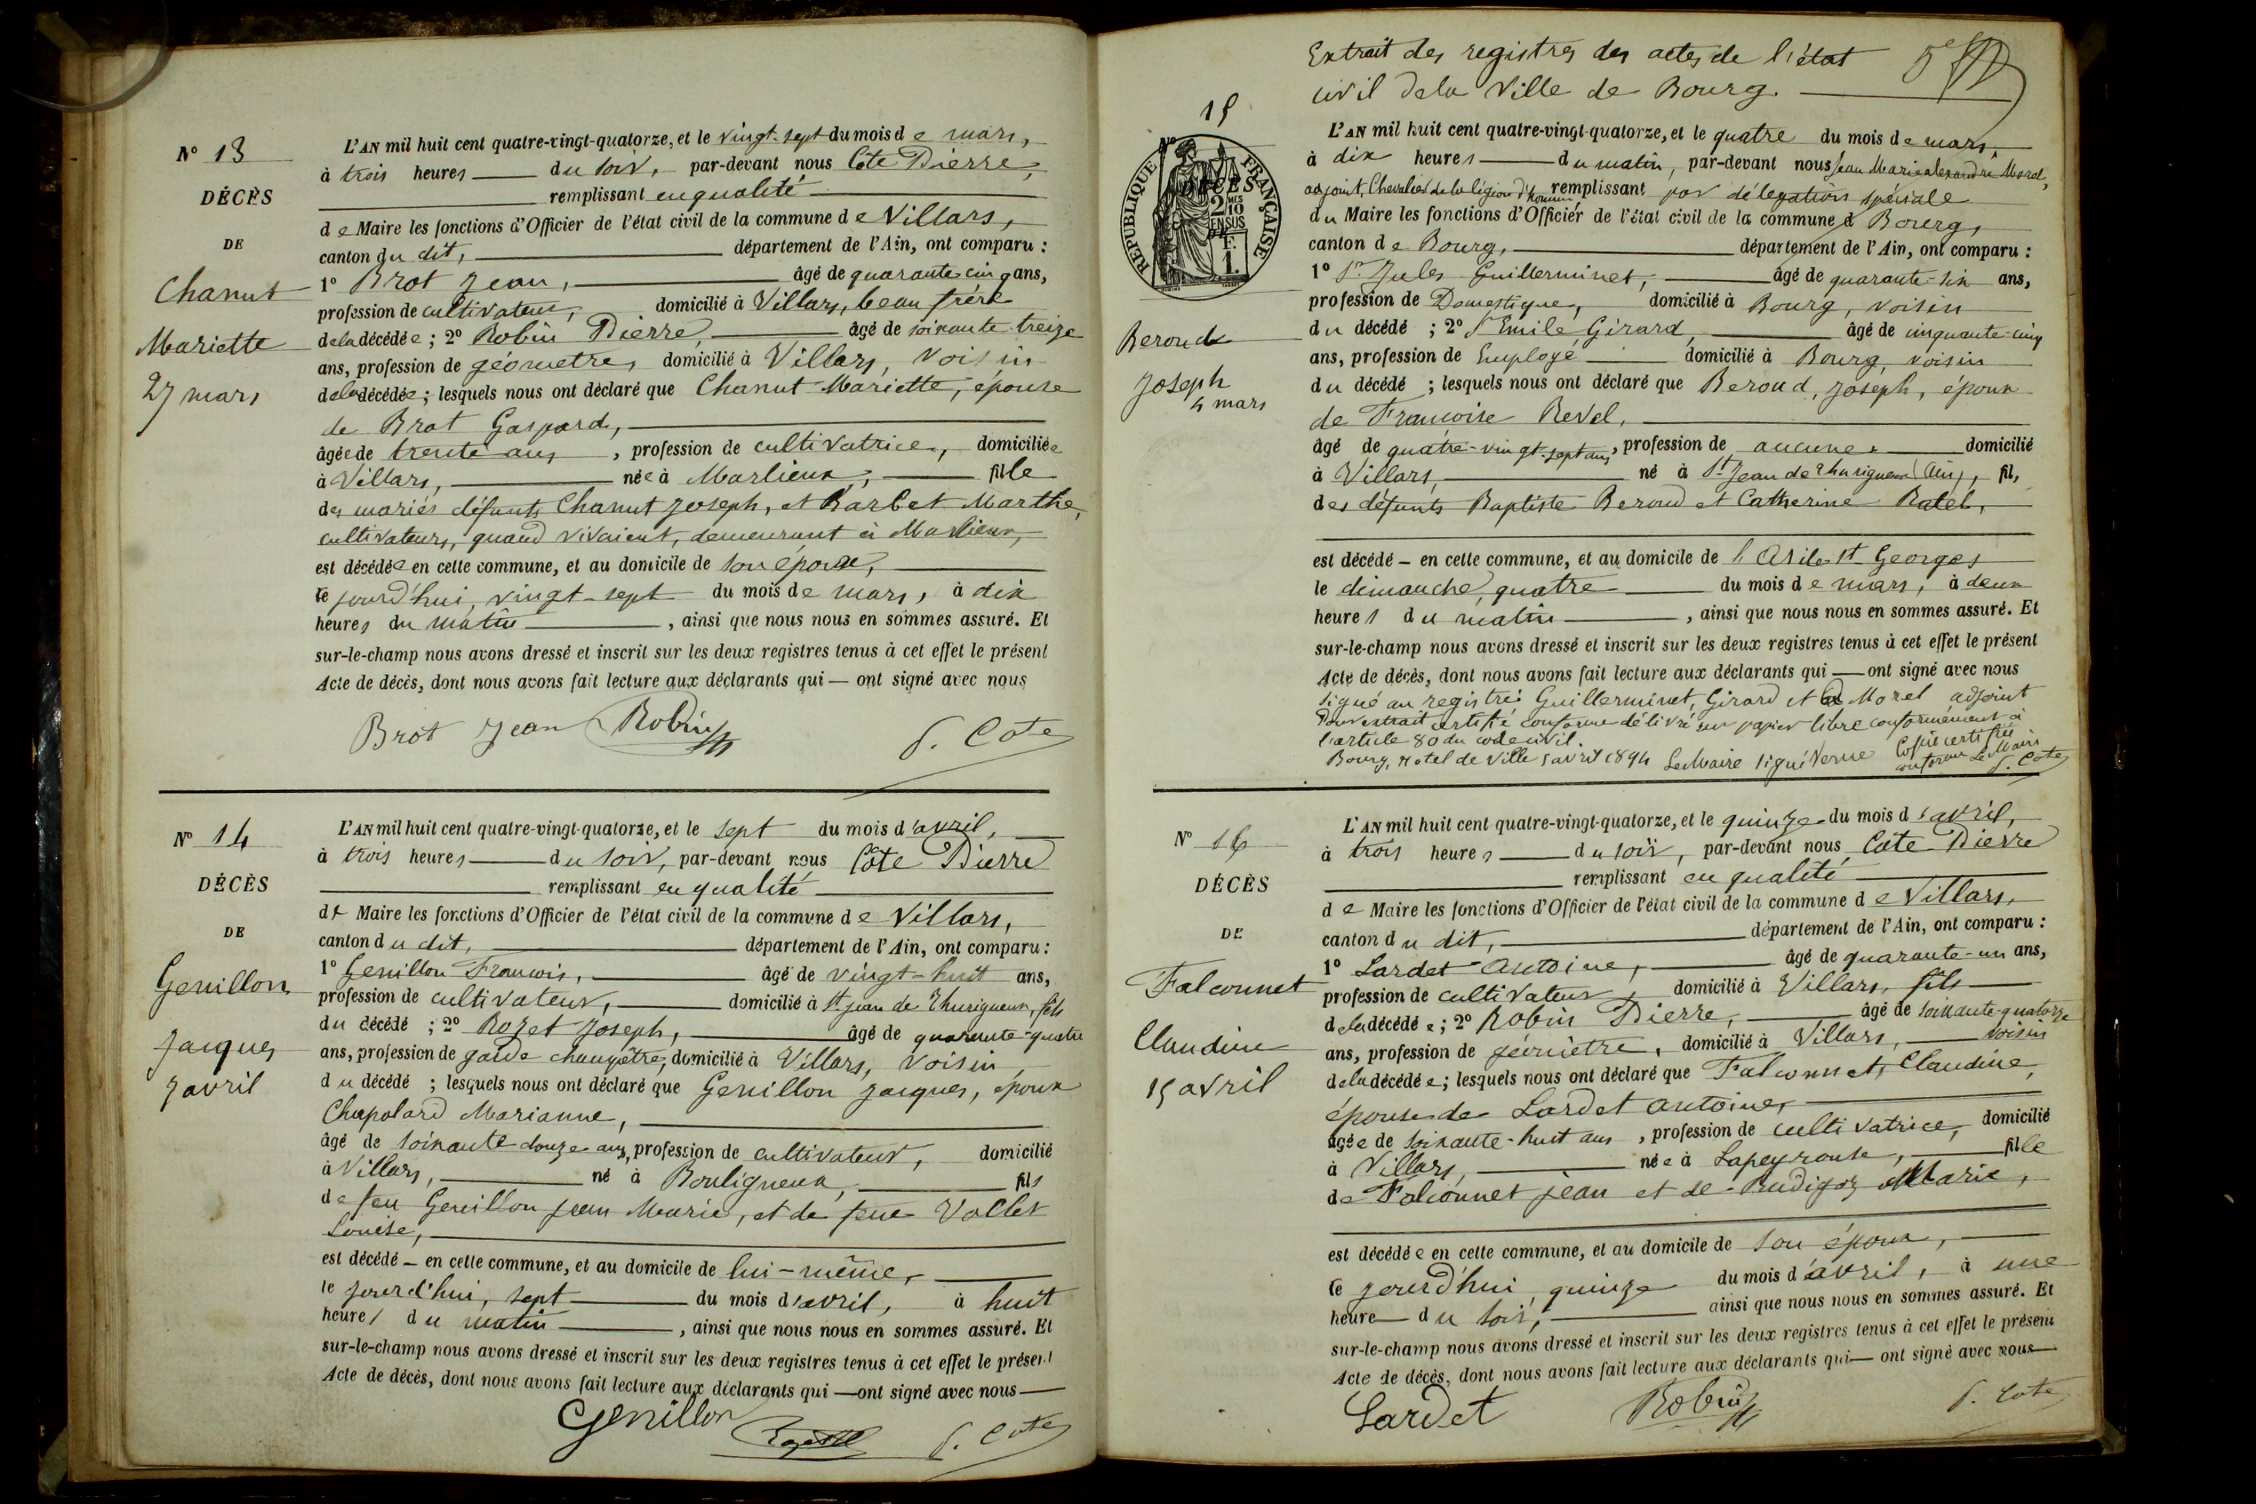 N° 13
DÉCÈS
DE
Chanut
Mariette
27 mars
L'AN mil huit cent quatre-vingt-quatorze, et le vingt-sept du mois de mars,
à trois heures du soir, par-devant nous Cote Pierre,
remplissant en qualité
de Maire les fonctions d'Officier de l'état civil de la commune de Villars,
canton du dit, département de l'Ain, ont comparu :
1° Brot Jean, âgé de quarante cinq ans,
profession de cultivateur, domicilié à Villars, beau frère
de la décédée ; 2° Robin Pierre, âgé de soixante treize
ans, profession de géometre, domicilié à Villars, voisin
de la décédée ; lesquels nous ont déclaré que Chanut Mariette, épouse
de Brot Gaspard,
âgée de trente ans, profession de cultivatrice, domiciliée
à Villars, née à Marlieux, fille
des mariés défunts Chanut Joseph, et Barbet Marthe,
cultivateurs, quand vivaient, demeurant à Marlieux,
est décédée en cette commune, et au domicile de son époux,
le jourd'hui, vingt-sept du mois de mars, à dix
heures du matin, ainsi que nous nous en sommes assuré. Et
sur-le-champ nous avons dressé et inscrit sur les deux registres tenus à cet effet le présent
Acte de décès, dont nous avons fait lecture aux déclarants qui — ont signé avec nous
Brot Jean Robin P. Cote
N° 14
DÉCÈS
DE
Genillon
Jacques
7 avril
L'AN mil huit cent quatre-vingt-quatorze, et le sept du mois d'avril,
à trois heures du soir, par-devant nous Côte Pierre
remplissant en qualité
de Maire les fonctions d'Officier de l'état civil de la commune de Villars,
canton du dit, département de l'Ain, ont comparu :
1° Genillon Francois, âgé de vingt-huit ans,
profession de cultivateur, domicilié à St Jean de Thurigneux, fils
du décédé ; 2° Rozet Joseph, âgé de quarante-quatre
ans, profession de garde champêtre, domicilié à Villars, voisin
du décédé ; lesquels nous ont déclaré que Genillon Jacques, époux
Chapolard Marianne,
âgé de soixante douze ans, profession de cultivateur, domicilié
à Villars, né à Bouligneux, fils
de feu Genillon Jean Marie, et de feue Vallet
Louise,
est décédé – en cette commune, et au domicile de lui-même,
le jourd'hui, sept du mois d'avril, à huit
heures du matin, ainsi que nous nous en sommes assuré. Et
sur-le-champ nous avons dressé et inscrit sur les deux registres tenus à cet effet le présent
Acte de décès, dont nous avons fait lecture aux déclarants qui — ont signé avec nous —
Genillon P. Cote
Extrait des registres des actes de l'état
civil de la Ville de Bourg.
15
RÉPUBLIQUE FRANÇAISE
2 MES 10 EN SUS
F. 1.
Beroud
Joseph
4 mars
L'AN mil huit cent quatre-vingt-quatorze, et le quatre du mois de mars,
à dix heures du matin, par-devant nous Jean Marie alexandre Morel,
adjoint, Chevalier de la légion d'honneur, remplissant par délegation spéciale
du Maire les fonctions d'Officier de l'état civil de la commune d Bourg,
canton de Bourg, département de l'Ain, ont comparu :
1° Sr Jules Guillerminet, âgé de quarante-six ans,
profession de Domestique, domicilié à Bourg, voisin
du décédé ; 2° Sr Emile Girard, âgé de cinquante-cinq
ans, profession de Employé domicilié à Bourg, voisin
du décédé ; lesquels nous ont déclaré que Beroud, Joseph, époux
de Françoise Revel,
âgé de quatre-vingt-sept ans, profession de aucune domicilié
à Villars, né à St Jean de Thurigneux (Ain), fils
des défunts Baptiste Beroud et Catherine Ratel,
est décédé – en cette commune, et au domicile de l'Asile St Georges
le dimanche, quatre du mois de mars, à deux
heures du matin, ainsi que nous nous en sommes assuré. Et
sur-le-champ nous avons dressé et inscrit sur les deux registres tenus à cet effet le présent
Acte de décès, dont nous avons fait lecture aux déclarants qui — ont signé avec nous
signé au registre: Guillerminet, Girard et A Morel adjoint
Pour extrait certifié conforme délivré sur papier libre conformément à
l'article 80 du code civil.
Bourg, Hotel de Ville 5 avril 1894 Le Maire signé Verne Copie certifiée
conforme Le Maire
P. Cote
N° 16
DÉCÈS
DE
Falconnet
Claudine
15 avril
L'AN mil huit cent quatre-vingt-quatorze, et le quinze du mois d'avril,
à trois heures du soir, par-devant nous Côte Pierre
remplissant en qualité
de Maire les fonctions d'Officier de l'état civil de la commune de Villars,
canton du dit, département de l'Ain, ont comparu :
1° Lardet Antoine, âgé de quarante-un ans,
profession de cultivateur, domicilié à Villars, fils
de la décédée ; 2° Robin Pierre, âgé de soixante-quatorze
ans, profession de géomètre, domicilié à Villars, voisin
de la décédée ; lesquels nous ont déclaré que Falconnet, Claudine,
épouse de Lardet Antoine,
âgée de soixante-huit ans, profession de cultivatrice, domicilié
à Villars, née à Lapeyrouse, fille
de Falconnet Jean et de Rudigoz Marie,
est décédée en cette commune, et au domicile de son époux,
le jourd'hui, quinze du mois d'avril, à une
heure du soir, ainsi que nous nous en sommes assuré. Et
sur-le-champ nous avons dressé et inscrit sur les deux registres tenus à cet effet le présent
Acte de décès, dont nous avons fait lecture aux déclarants qui — ont signé avec nous —
Lardet Robin P. Cote